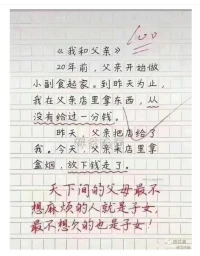 100
《我和父亲》
20年前，父亲开始做
小副食起家。到昨天为止，
我在父亲店里拿东西，从
没有给过一分钱。
昨天，父亲把店给了
我。今天，父亲来店里拿
盒烟，放下钱走了。
天下间的父母最不
想麻烦的人就是子女，
最不想欠的也是子女！